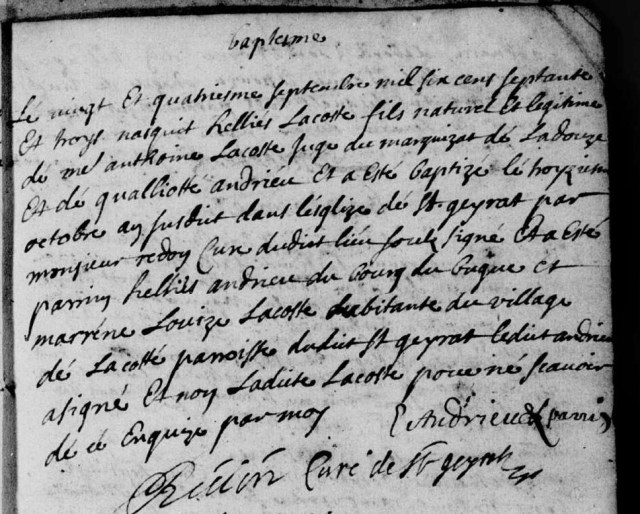 baptesme
Le vinzt Et quatriesme septembre mil six cens septante
Et troys nasquit hellies Lacoste fils naturel Et legitime
dé me anthoine Lacoste Juge du marquizat dé Ladouze
Et dé qualliotté andrieu Et a esté baptizé lé troyziesme
octobre an susdict dans lésglize dé St geyrat par
monsieur redon Curé dudict lieu soubz signé Et a Esté
parrin hellies andrieu du bourg du bugue et
marréne Louize Lacoste habitante du village
dé Lacosté parroisse dudict St geyrat ledict andrieu
a signé Et non Ladicte Lacoste pour né scavoir
dé cé Enquize par moy
Andrieu parrin
Curé de St geyrat